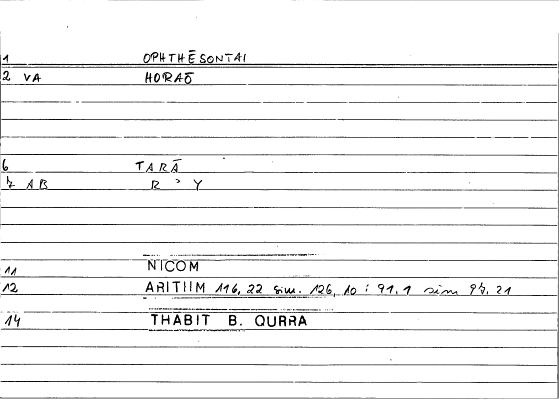 1 OPHTHĒSONTAI
2 VA HORAŌ
6 TARĀ
7 AB R ʾ Y
11 NICOM
12 ARITIIM 116, 22 sim. 126, 10 : 91, 1 sim 97, 21
14 THABIT B. QURRA